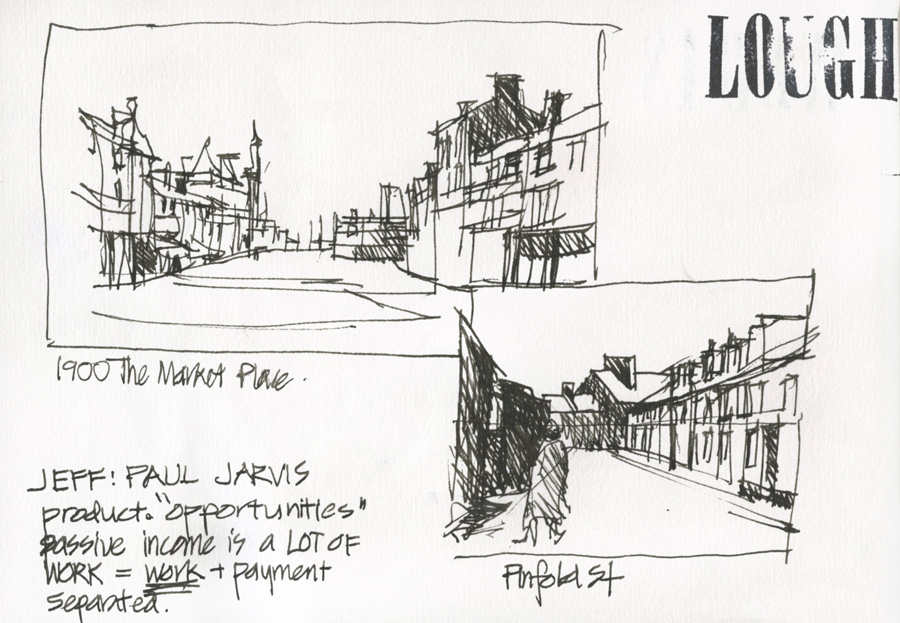 LOUGH
1900 The Market Place.
JEFF! PAUL JARVIS
product. "opportunities"
passive income is a LOT OF
WORK = work + payment
separated.
Pinfold St